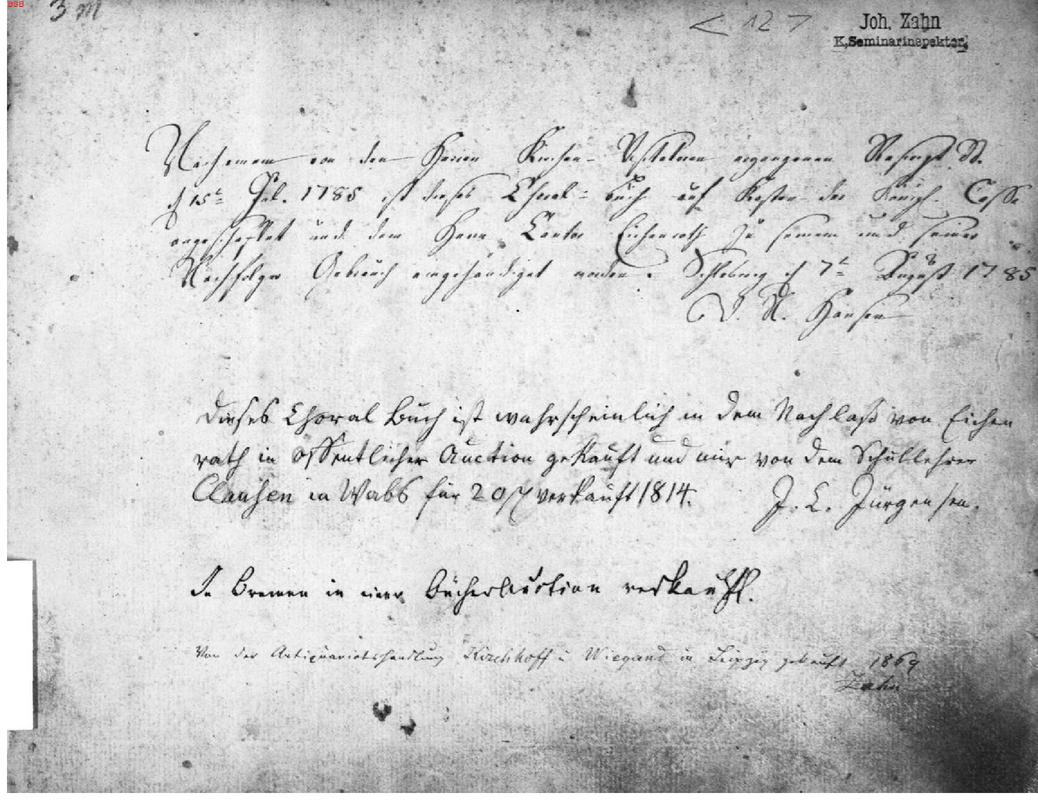 3 m
< 12 >
Joh. Zahn
K. Seminarinspektor.
Nach einem von den Herren Kirchen-Visitatoren ergangenen
15t Jul. 1785 ist dieses Choral-Buch auf Kosten der Königl. Casse
angeschaffet und dem Herrn Cantor Eichenrath zu seinem und seiner
Nachfolger Gebrauch eingehändiget worden. 7t August 1785
Hansen
Dieses Choral Buch ist wahrscheinlich in dem Nachlaß von Eichen
rath in öffentlicher Auction gekauft und mir von dem Schullehrer
Clausen in Wabs für 20 verkauft 1814. J. L. Jürgensen.
In Bremen in einer Bücherauction verkauft.
Von der Antiquariatshandlung Kirchhoff u Wiegand in Leipzig gekauft 1869
Zahn